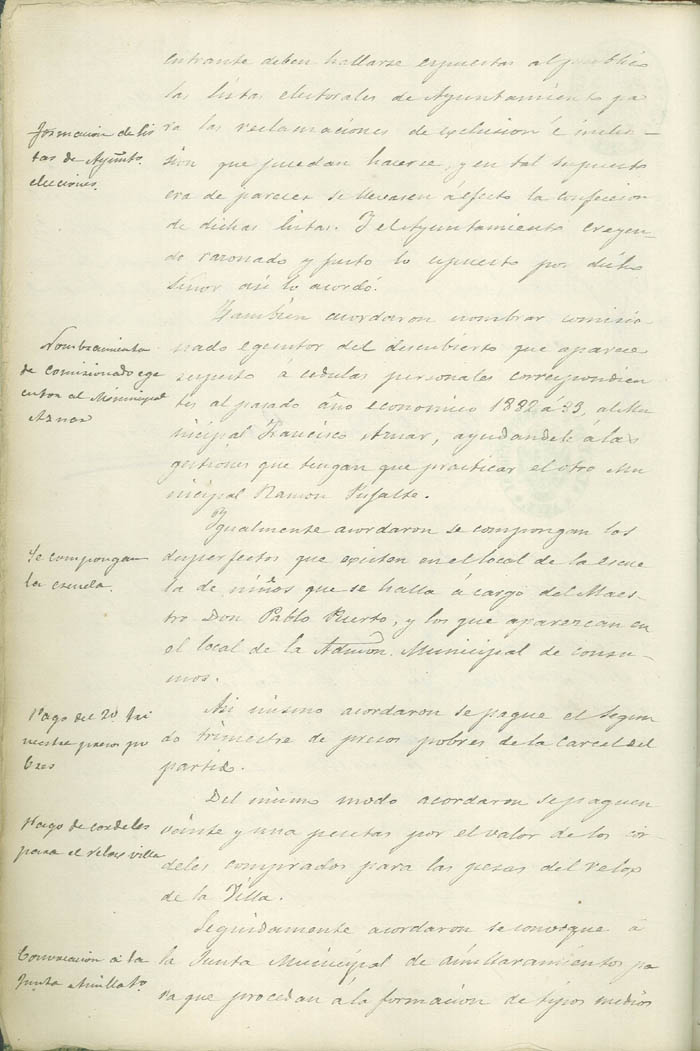 entrante deben hallarse expuestas al publico
las listas electorales de Ayuntamiento pa
Formacion de lis
tas de Ayunto.
elecciones.
ra las reclamaciones de exclusion é inclu-
sion que puedan hacerse, y en tal supuesto
era de parecer se llevasen á efecto la confeccion
de dichas listas. Y el Ayuntamiento creyen-
do razonado y justo lo espuesto por dicho
Señor asi lo acordó.
Nombramiento
de comisionado ege
cutor al Municipal
Aznar
Tambien acordaron nombrar comisio-
nado egecutor del descubierto que aparece
respecto á cedulas personales correspondien
tes al pasado año economico 1882 á 83, al Mu
nicipal Francisco Aznar, ayudandole á las
gestiones que tengan que practicar el otro Mu
nicipal Ramon Pujalte.
Se compongan
la escuela.
Ygualmente acordaron se compongan los
desperfectos que existen en el local de la escue
la de niños que se halla á cargo del Maes-
tro Don Pablo Puerto, y los que aparezcan en
el local de la Admon. Municipal de consu-
mos.
Pago del 2º tri
mestre presos po
bres
Asi mismo acordaron se pague el segun
do trimestre de presos pobres de la Carcel del
partido.
Pago de cordeles
para el relox villa
Del mismo modo acordaron se paguen
veinte y una pesetas por el valor de los cor-
deles comprados para las pesas del relox
de la Villa.
Convocacion á la
Junta Amillato.
Seguidamente acordaron se convoque á
la Junta Municipal de amillaramientos pa
ra que procedan á la formacion de tipos medios